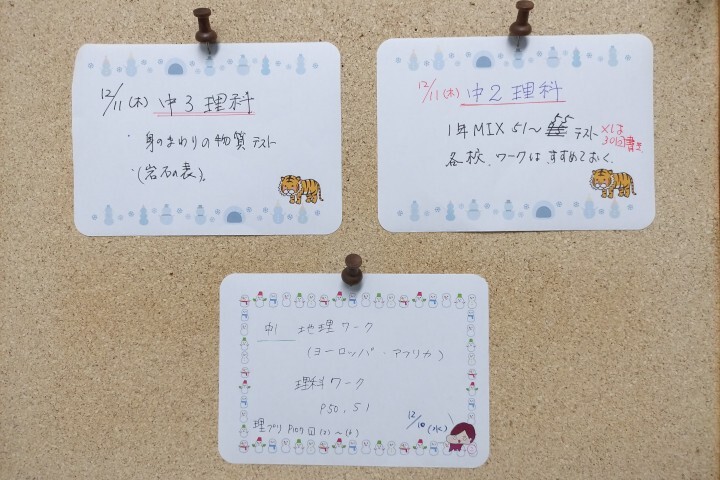 12/11(木) 中3 理科
・身のまわりの物質テスト
・(岩石の表)。
12/11(木) 中2 理科
1年MIX 51〜55 テスト ×1は30回書き
各校、ワークはすすめておく。
中1 地理ワーク
(ヨーロッパ・アフリカ)
理科ワーク
P50,51
理プリ
12/10(水)